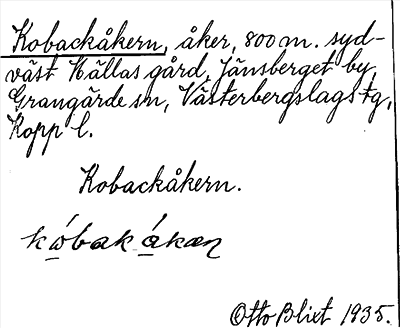 Kobackåkern, åker, 800 m. syd-
väst Källas gård, Jänsberget by,
Grangärde sn, Västerbergslags tg,
Kopp l.
Kobackåkern.
kóbakákæn
Otto Blixt 1935.